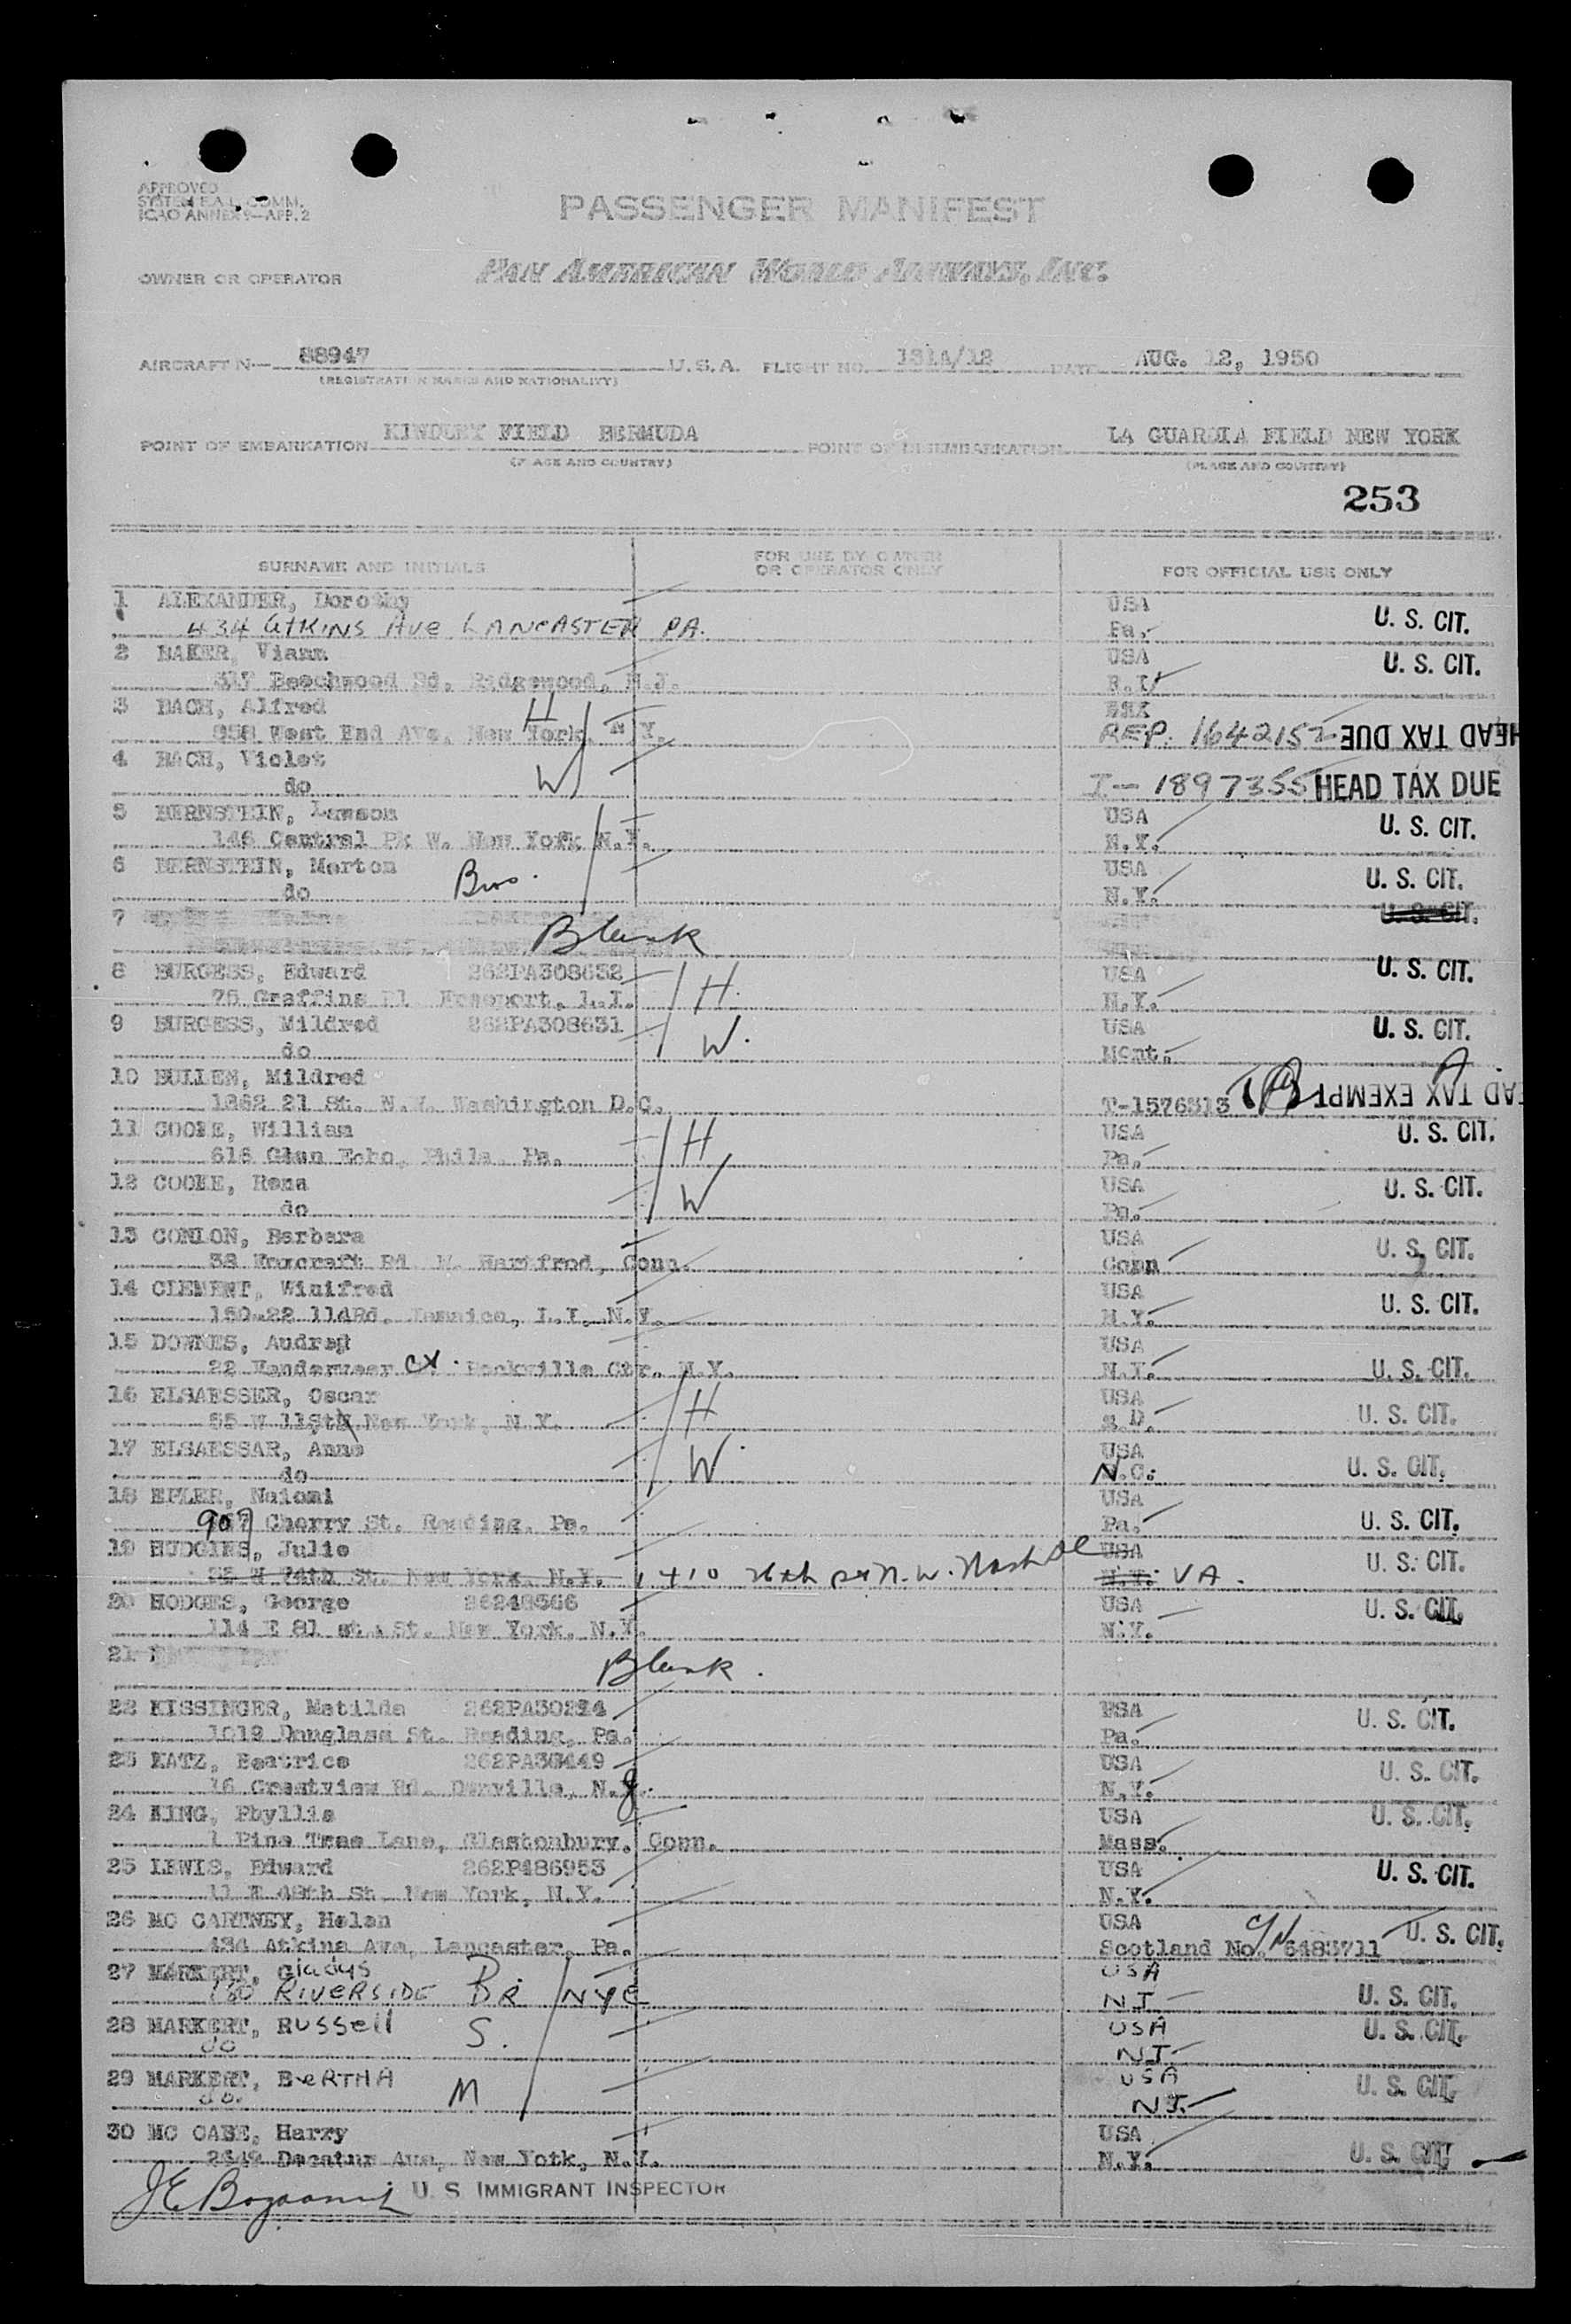 APPROVED
SYSTEM COMM.
ICAO ANNEX 9—APP. 2
PASSENGER MANIFEST
OWNER OR OPERATOR PAN AMERICAN WORLD AIRWAYS, INC.
AIRCRAFT N— 88947 U.S.A. FLIGHT NO. 131A/12 DATE AUG. 12, 1950
(REGISTRATION MARKS AND NATIONALITY)
POINT OF EMBARKATION KINDLEY FIELD BERMUDA POINT OF DISEMBARKATION LA GUARDIA FIELD NEW YORK
(PLACE AND COUNTRY) (PLACE AND COUNTRY)
253
SURNAME AND INITIALS FOR USE BY OWNER OR OPERATOR ONLY FOR OFFICIAL USE ONLY
1 ALEXANDER, Dorothy USA U. S. CIT.
434 ATKINS Ave LANCASTER PA. Pa.
2 BAKER, Viann USA U. S. CIT.
Beechwood Rd. Ridgewood, N.J.
3 BACH, Alfred H
958 West End Ave. New York, N.Y. REP. 1642152 HEAD TAX DUE
4 BACH, Violet
do W I— 1897355 HEAD TAX DUE
5 BERNSTEIN, Lawson USA U. S. CIT.
146 Central Pk W. New York N.Y. N.Y.
6 BERNSTEIN, Merton USA U. S. CIT.
do Bro. N.Y.
7 U. S. CIT.
Blank
8 BURGESS, Edward 262PA308632 USA U. S. CIT.
75 Graffing Pl Freeport, L.I. H. N.Y.
9 BURGESS, Mildred 262PA308631 USA U. S. CIT.
do W. Mont.
10 BULLEN, Mildred
1362 21 St. N.W. Washington D.C. T-1576513 HEAD TAX EXEMPT
11 COOKE, William USA U. S. CIT.
616 Glen Echo, Phila. Pa. H Pa.
12 COOKE, Rena USA U. S. CIT.
do W Pa.
13 CONLON, Barbara USA U. S. CIT.
38 Rd W. Hartfrod, Conn. Conn
14 CLEMENT, Winifred USA U. S. CIT.
150-22 114Rd. Jamaica, L.I. N.Y. N.Y.
15 DOWNES, Audrey USA
22 CT. Rockville Ctr. N.Y. N.Y. U. S. CIT.
16 ELSAESSER, Oscar H USA U. S. CIT.
New York, N.Y. D.
17 ELSAESSAR, Anne USA
do W N.C. U. S. CIT.
18 EPLER, Naiomi USA
907 Cherry St. Reading, Pa. Pa. U. S. CIT.
19 HUDGINS, Julie USA U. S. CIT.
35 W 74th St. New York, N.Y. 1410 N.W. VA.
20 HODGES, George 26248566 USA U. S. CIT.
114 E 81 st. St. New York, N.Y. N.Y.
21 Blank.
22 KISSINGER, Matilda USA U. S. CIT.
1019 Douglass St. Reading, Pa. Pa.
23 KATZ, Beatrice USA U. S. CIT.
16 Crestview Rd. N.J. N.Y.
24 KING, Phyllis USA U. S. CIT.
1 Pine Tree Lane, Glastonbury, Conn. Mass.
25 LEWIS, Edward 262P486953 USA U. S. CIT.
11 E 48th St. New York, N.Y. N.Y.
26 MC CARTNEY, Helen USA C/N U. S. CIT.
434 Atkins Ave, Lancaster, Pa. Scotland No. 6483711
27 MARKERT, Gladys USA
RIVERSIDE DR NYC NJ U. S. CIT.
28 MARKERT, Russell S. USA U. S. CIT.
do NJ
29 MARKERT, BeRTHA M USA U. S. CIT.
do. NJ.
30 MC CABE, Harry USA
2649 Decatur Ave, New Yotk, N.Y. N.Y. U. S. CIT.
U. S. IMMIGRANT INSPECTOR